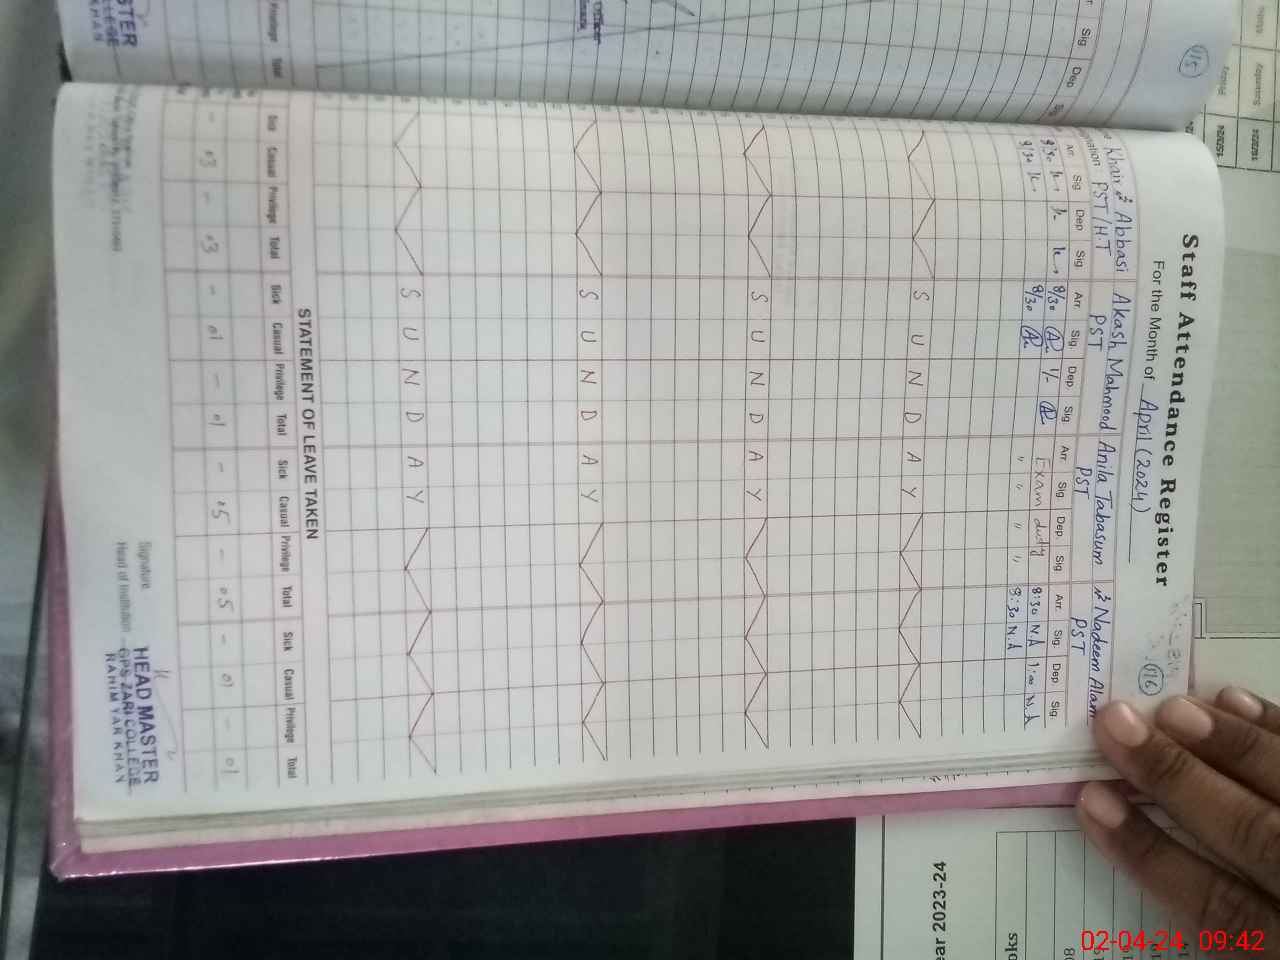 116
Staff Attendance Register
For the Month of April (2024)
Khair Abbasi Akash Mahmood Anila Tabasum Nadeem Alam
PST/H.T PST PST PST
Arr. Sig Dep Sig Arr. Sig. Dep. Sig Arr. Sig Dep. Sig Arr. Sig. Dep Sig.
8/30 8/30 1/- Exam duty 8:30 NA 1:00 NA
8/30 8/30 " " " " 8:30 N.A
SUNDAY
SUNDAY
SUNDAY
SUNDAY
STATEMENT OF LEAVE TAKEN
Sick Casual Privilege Total Sick Casual Privilege Total Sick Casual Privilege Total Sick Casual Privilege Total
- 03 - 03 - 01 - 01 - 05 - 05 - 01 - 01
Signature
Head of Institution
HEAD MASTER
GPS ZARI COLLEGE
RAHIM YAR KHAN
115
Sig Dep
Privilege Total
Officer
STER
LLEGE
KHAN
ear 2023-24
oks
02-04-24 09:42